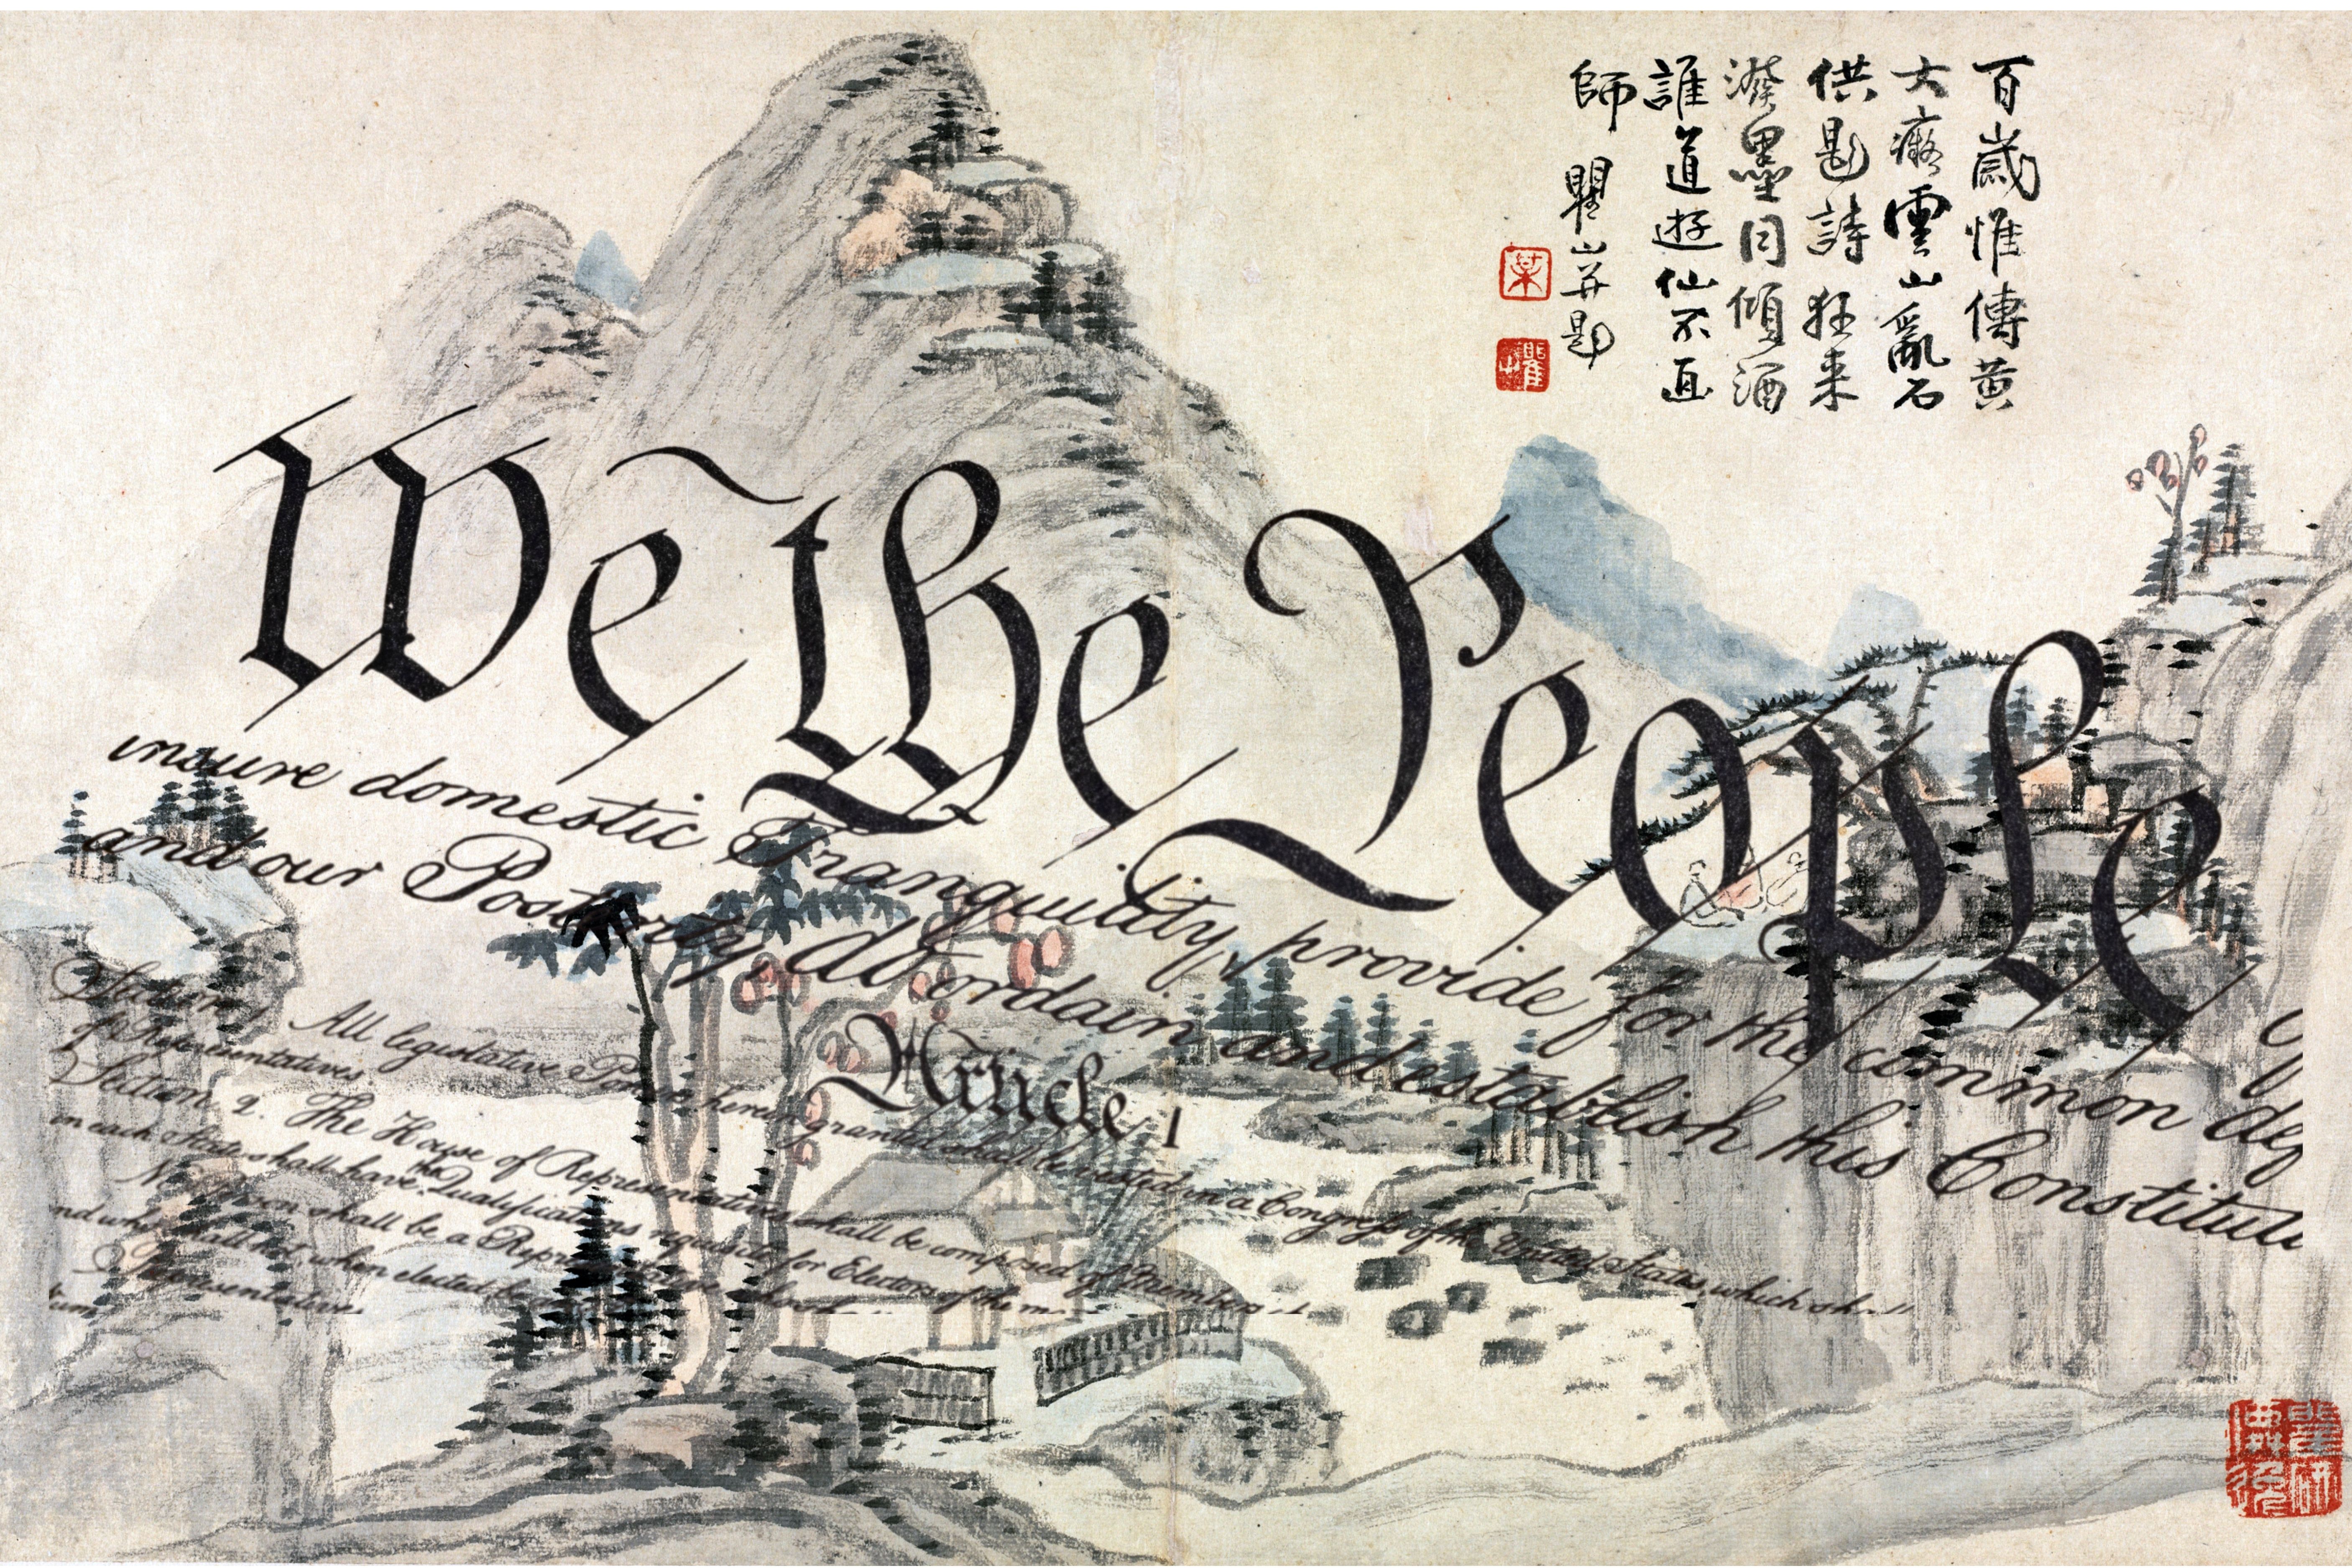 百歲惟傳黄
大癡雲山亂石
供題詩狂来
潑墨同傾酒
誰道遊仙不直
師 瞿山并題
We the People
insure domestic Tranquility, provide for the common def
and our Posterity, do ordain and establish this Constituti
Article 1
Section 1. All legislative Powers herein granted shall be vested in a Congress of the United States, which sh
of Representatives.
Section. 2. The House of Representatives shall be composed of Members
in each State shall have the Qualifications requisite for Electors of the m
No Person shall be a Representative
nd who shall not, when elected, be
Representatives